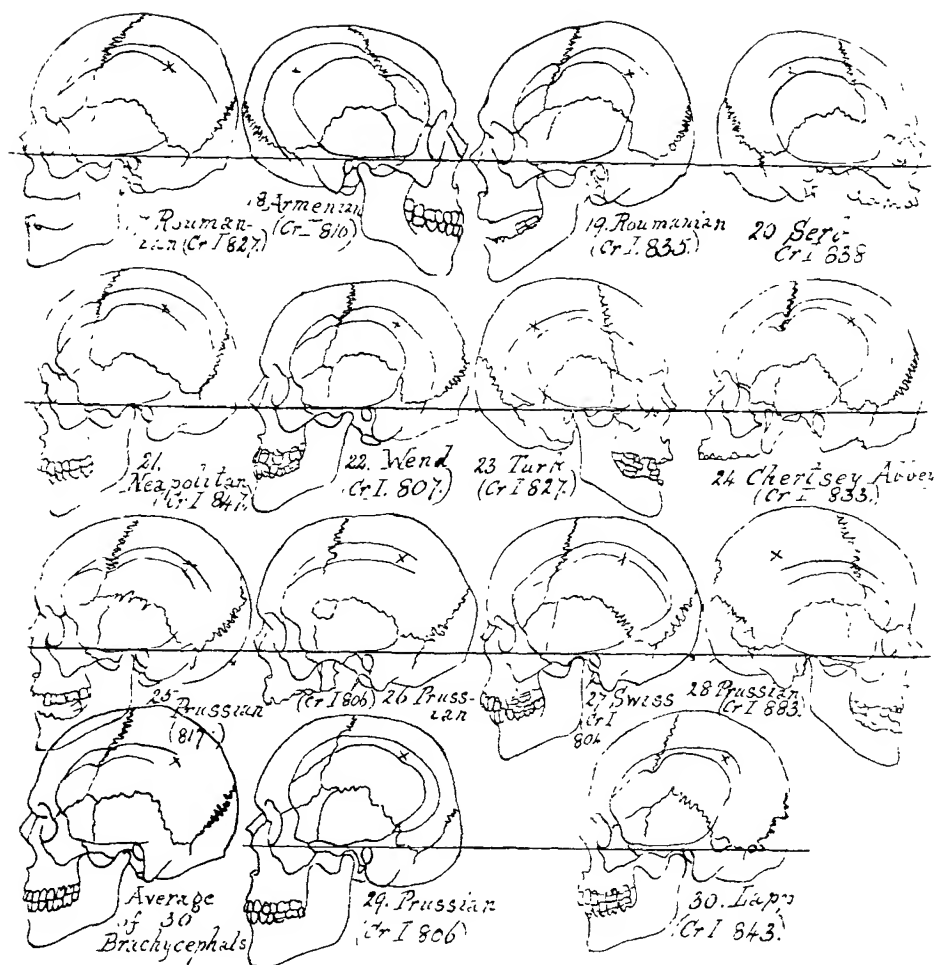 17 Rouman-
ian (Cr I 827.)
18. Armenian
(Cr I 810)
19. Roumanian
(Cr I. 835.)
20 Serb
Cr I 838
21.
Neapolitan
(Cr I 847.)
22. Wend
Cr I. 807.)
23 Turk
(Cr I 827.)
24 Chertsey Abbey
(Cr I 833.)
25 Prussian
(817.)
(Cr I 806) 26 Pruss-
ian
27 Swiss
(Cr I
804
28 Prussian
(Cr I 883.
Average
of 30
Brachycephals
29. Prussian
(Cr I 806)
30. Lapp
(Cr I 843.)